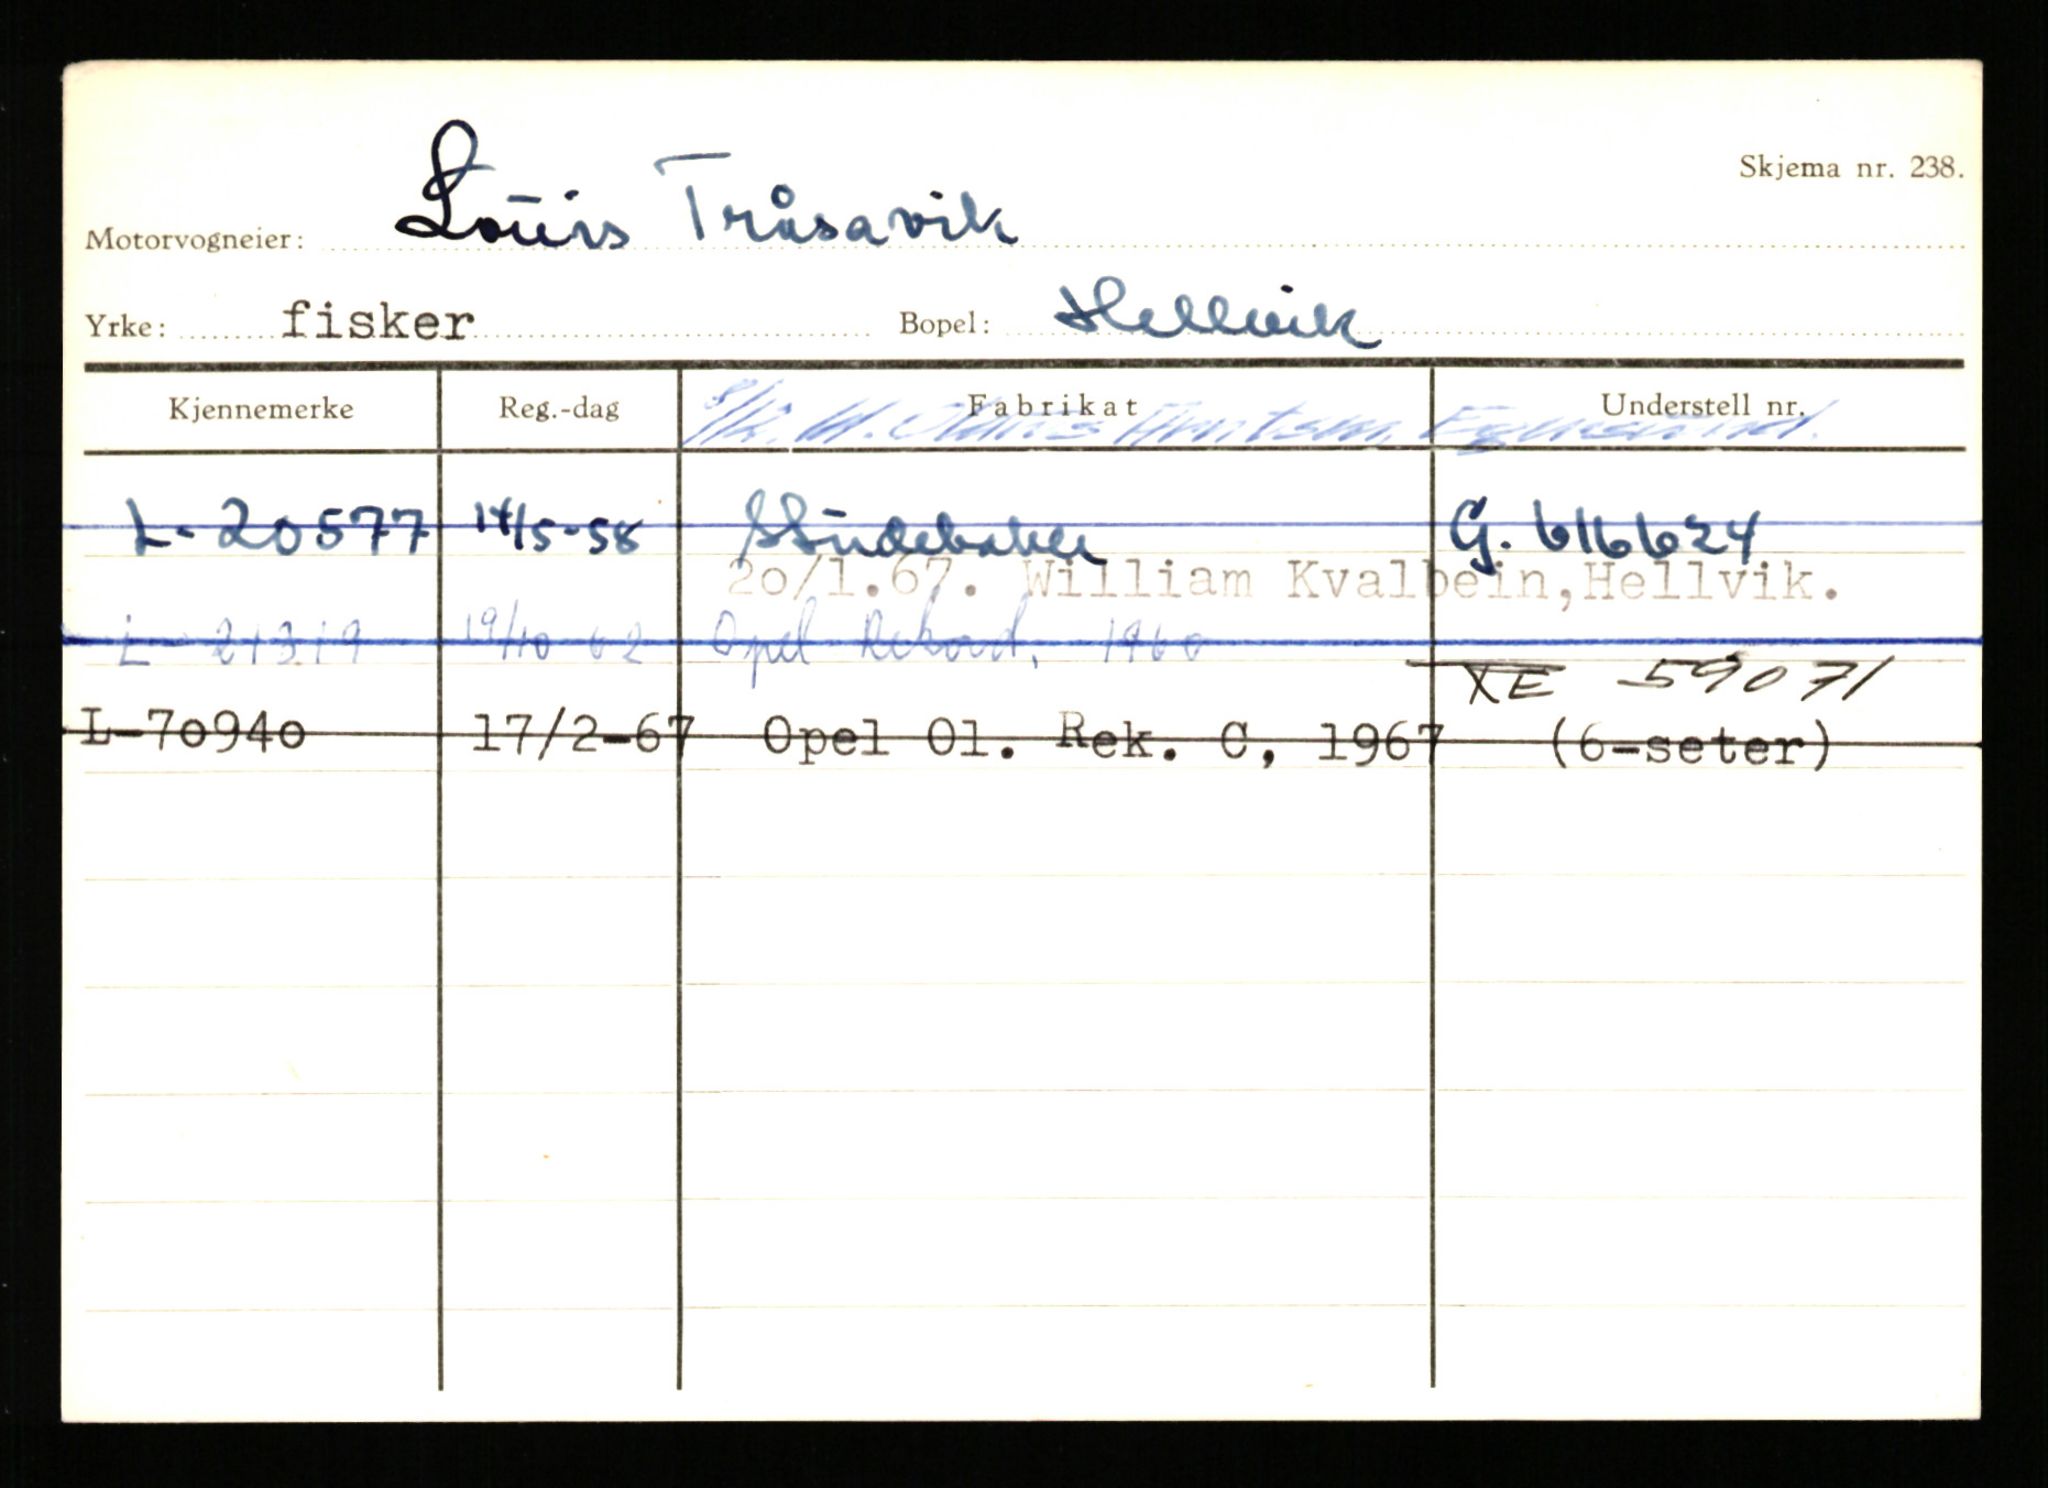 Skjema nr. 238.
Motorvogneier: Louis Tråsavik
Yrke: fisker Bopel: Hellvik
Kjennemerke Reg.-dag Fabrikat Understell nr.
Egersund.
L-20577 14/5-58 Studebaker G. 616624
20/1.67. William Kvalbein,Hellvik.
L-21319 19/10 62 Opel Rekord, 1960
XE 59071
L-70940 17/2-67 Opel Ol. Rek. C, 1967 (6-seter)